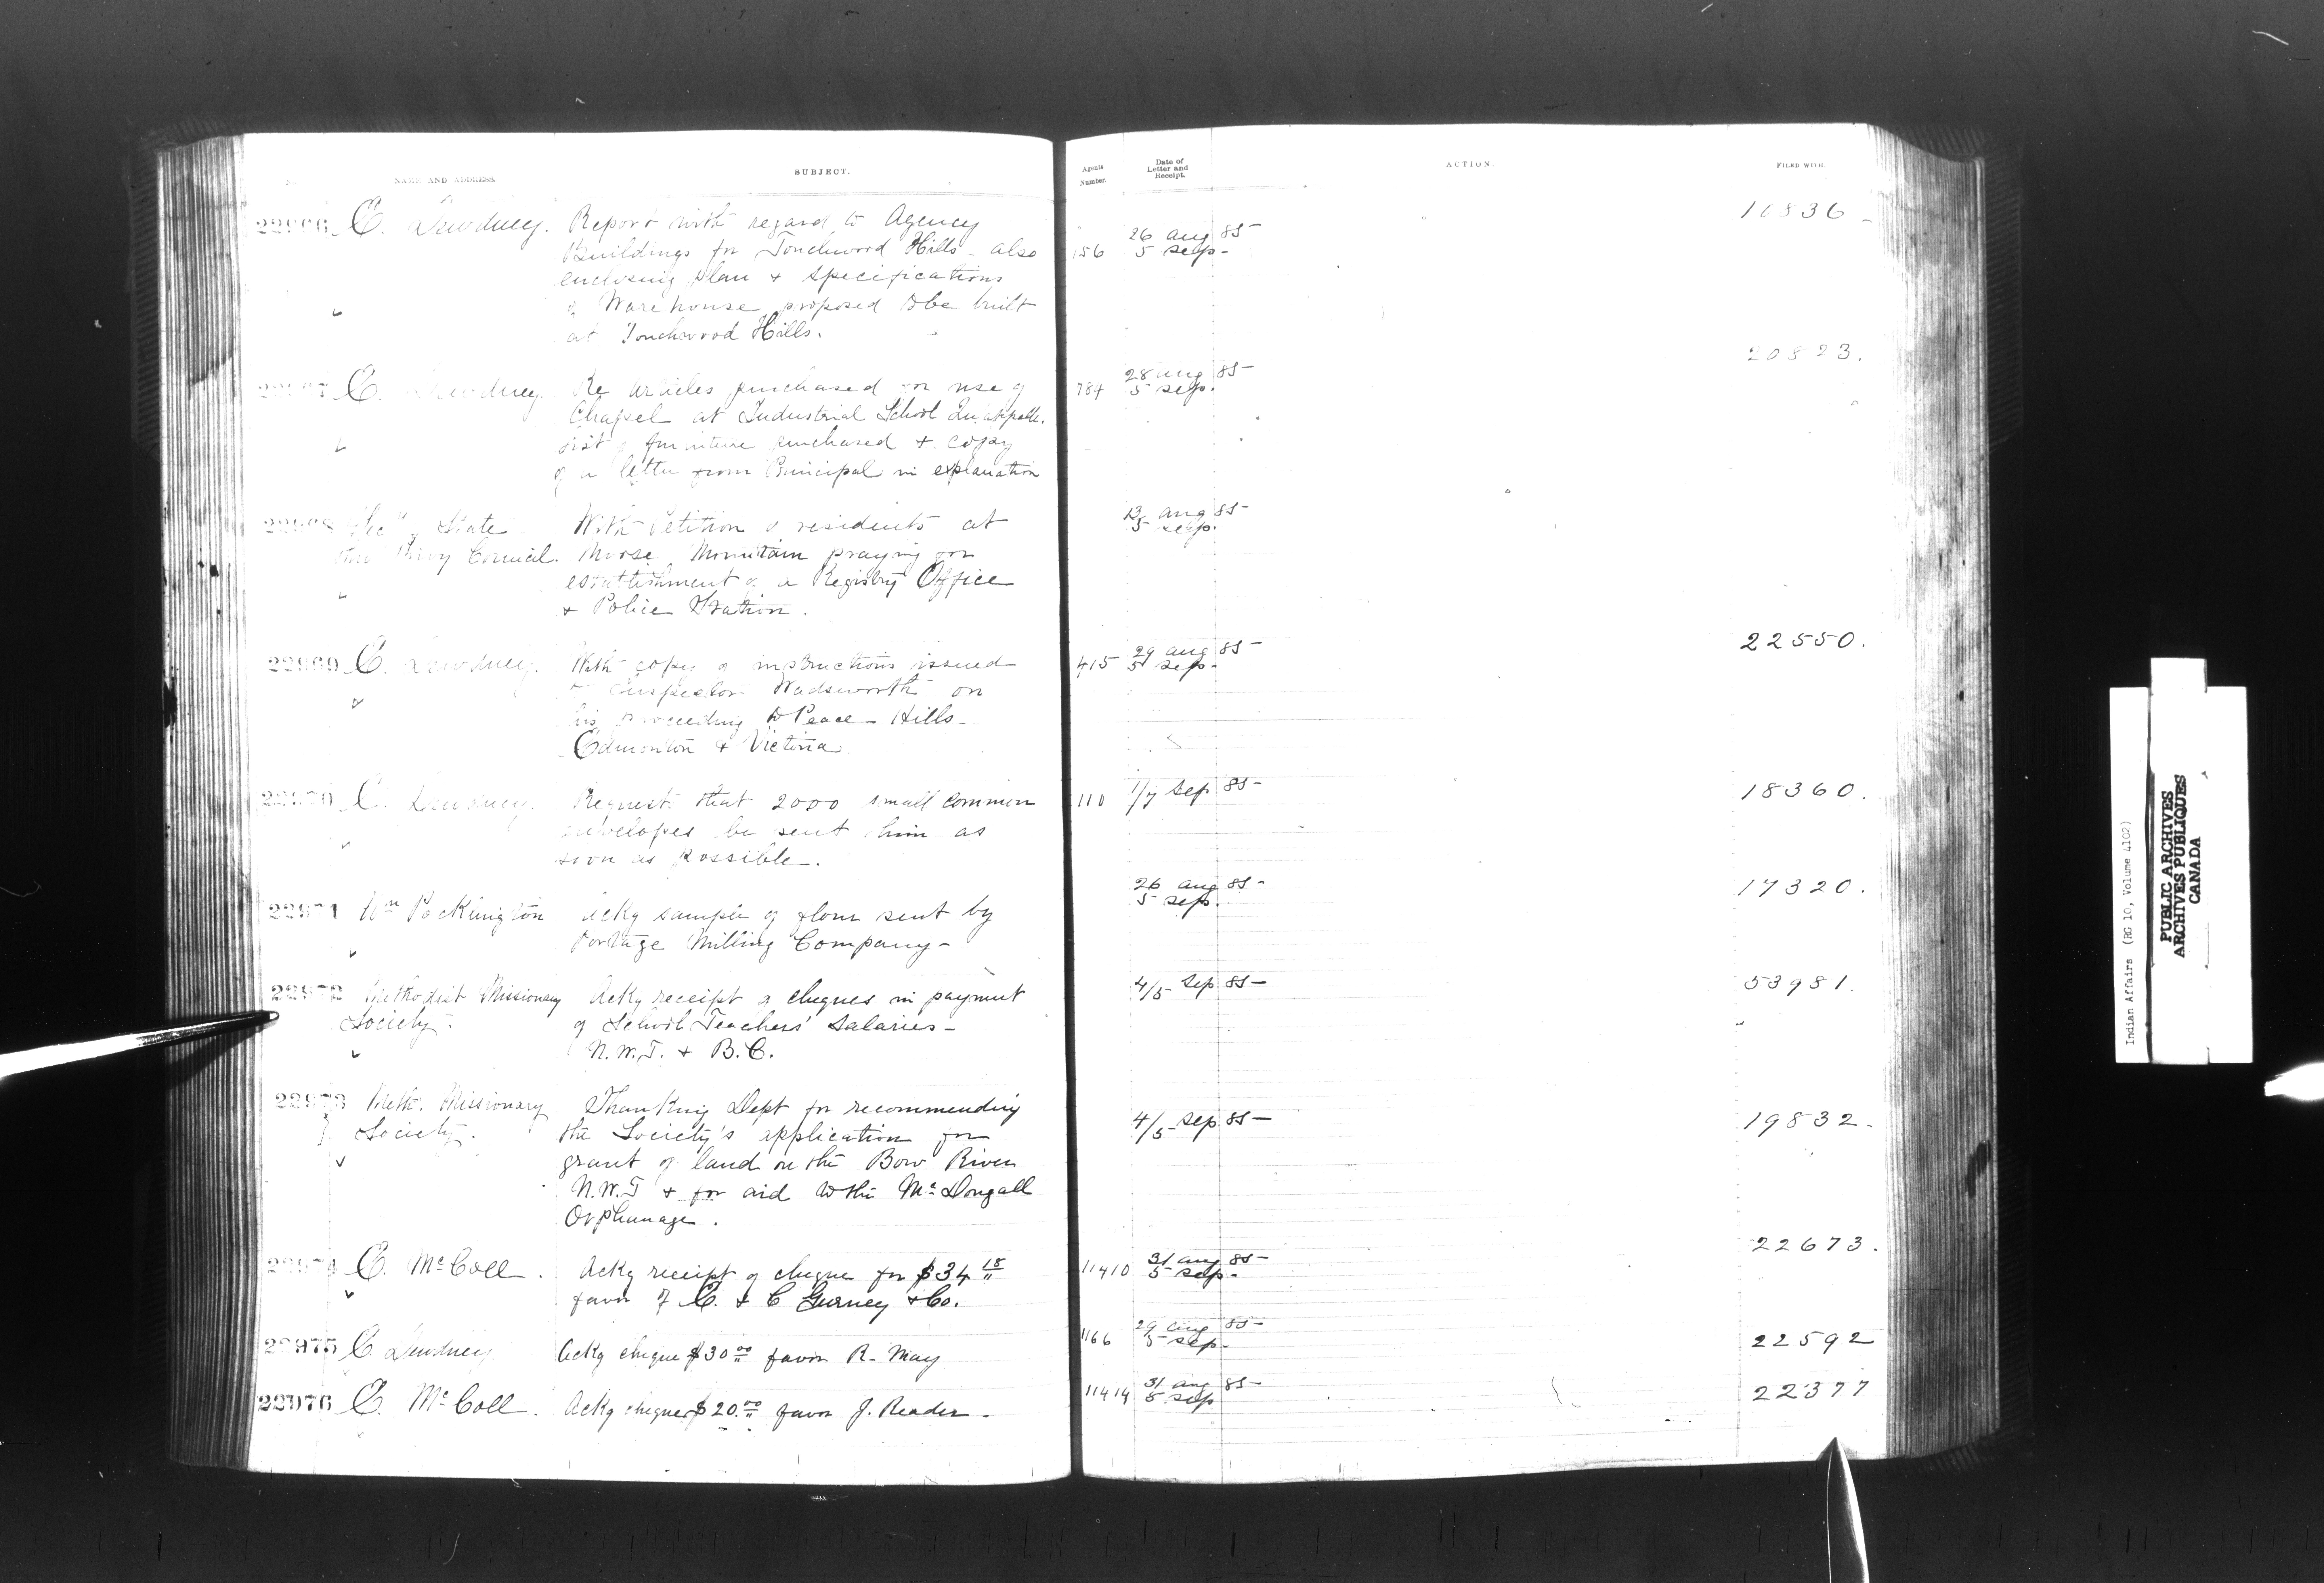 NAME AND ADDRESS.
SUBJECT.
Agents Number.
Date of Letter and Receipt.
ACTION.
FILED WITH
22966 E. Dewdney. Report with regard to Agency
Buildings for Touchwood Hills - also
enclosing plan & specifications
of Warehouse proposed to be built
at Touchwood Hills.
156
26 Aug 85
5 Sep -
10836 -
22967 E. Dewdney. Re articles purchased for use of
Chapel at Industrial School Qu'appelle.
List of furniture purchased & copy
of a letter from Principal in explanation
784
28 Aug 85
5 Sep.
20823.
22968 Secy of State
Privy Council.
With Petition of residents at
Moose Mountain praying for
establishment of a Registry Office
& Police Station.
13 Aug 85
5 Sep.
22969 E. Dewdney. With copy of instructions issued
to Inspector Wadsworth on
his proceeding to Peace Hills -
Edmonton & Victoria.
415
29 Aug 85
5 Sep -
22550.
22970 E. Dewdney. Request that 2000 small common
envelopes be sent him as
soon as possible.
110
1/7 Sep 85
18360.
22971 Wm Packington Ackg sample of flour sent by
Portage Milling Company -
26 Aug 85
5 Sep.
17320.
22972 Methodist Missionary
Society.
Ackg receipt of cheques in payment
of School Teachers' Salaries -
N.W.T. & B.C.
4/5 Sep 85
53981.
22973 Meth. Missionary
Society.
Thanking Dept for recommending
the Society's application for
grant of land on the Bow River
N.W.T & for aid to the Mc Dougall
Orphanage.
4/5 Sep 85
19832.
22974 E. McColl. Ackg receipt of cheque for $34 18
favor of E. & C Gurney & Co.
11410
31 Aug 85
5 Sep -
22673.
22975 E. Dewdney. Ackg cheque $30 00 favor R. May
1166
29 Aug 85
5 Sep -
22592
22976 E. McColl. Ackg cheque $20.00 favor J. Reader -
11414
31 Aug 85
5 Sep
22377
Indian Affairs (RG 10, Volume 4102)
PUBLIC ARCHIVES
ARCHIVES PUBLIQUES
CANADA